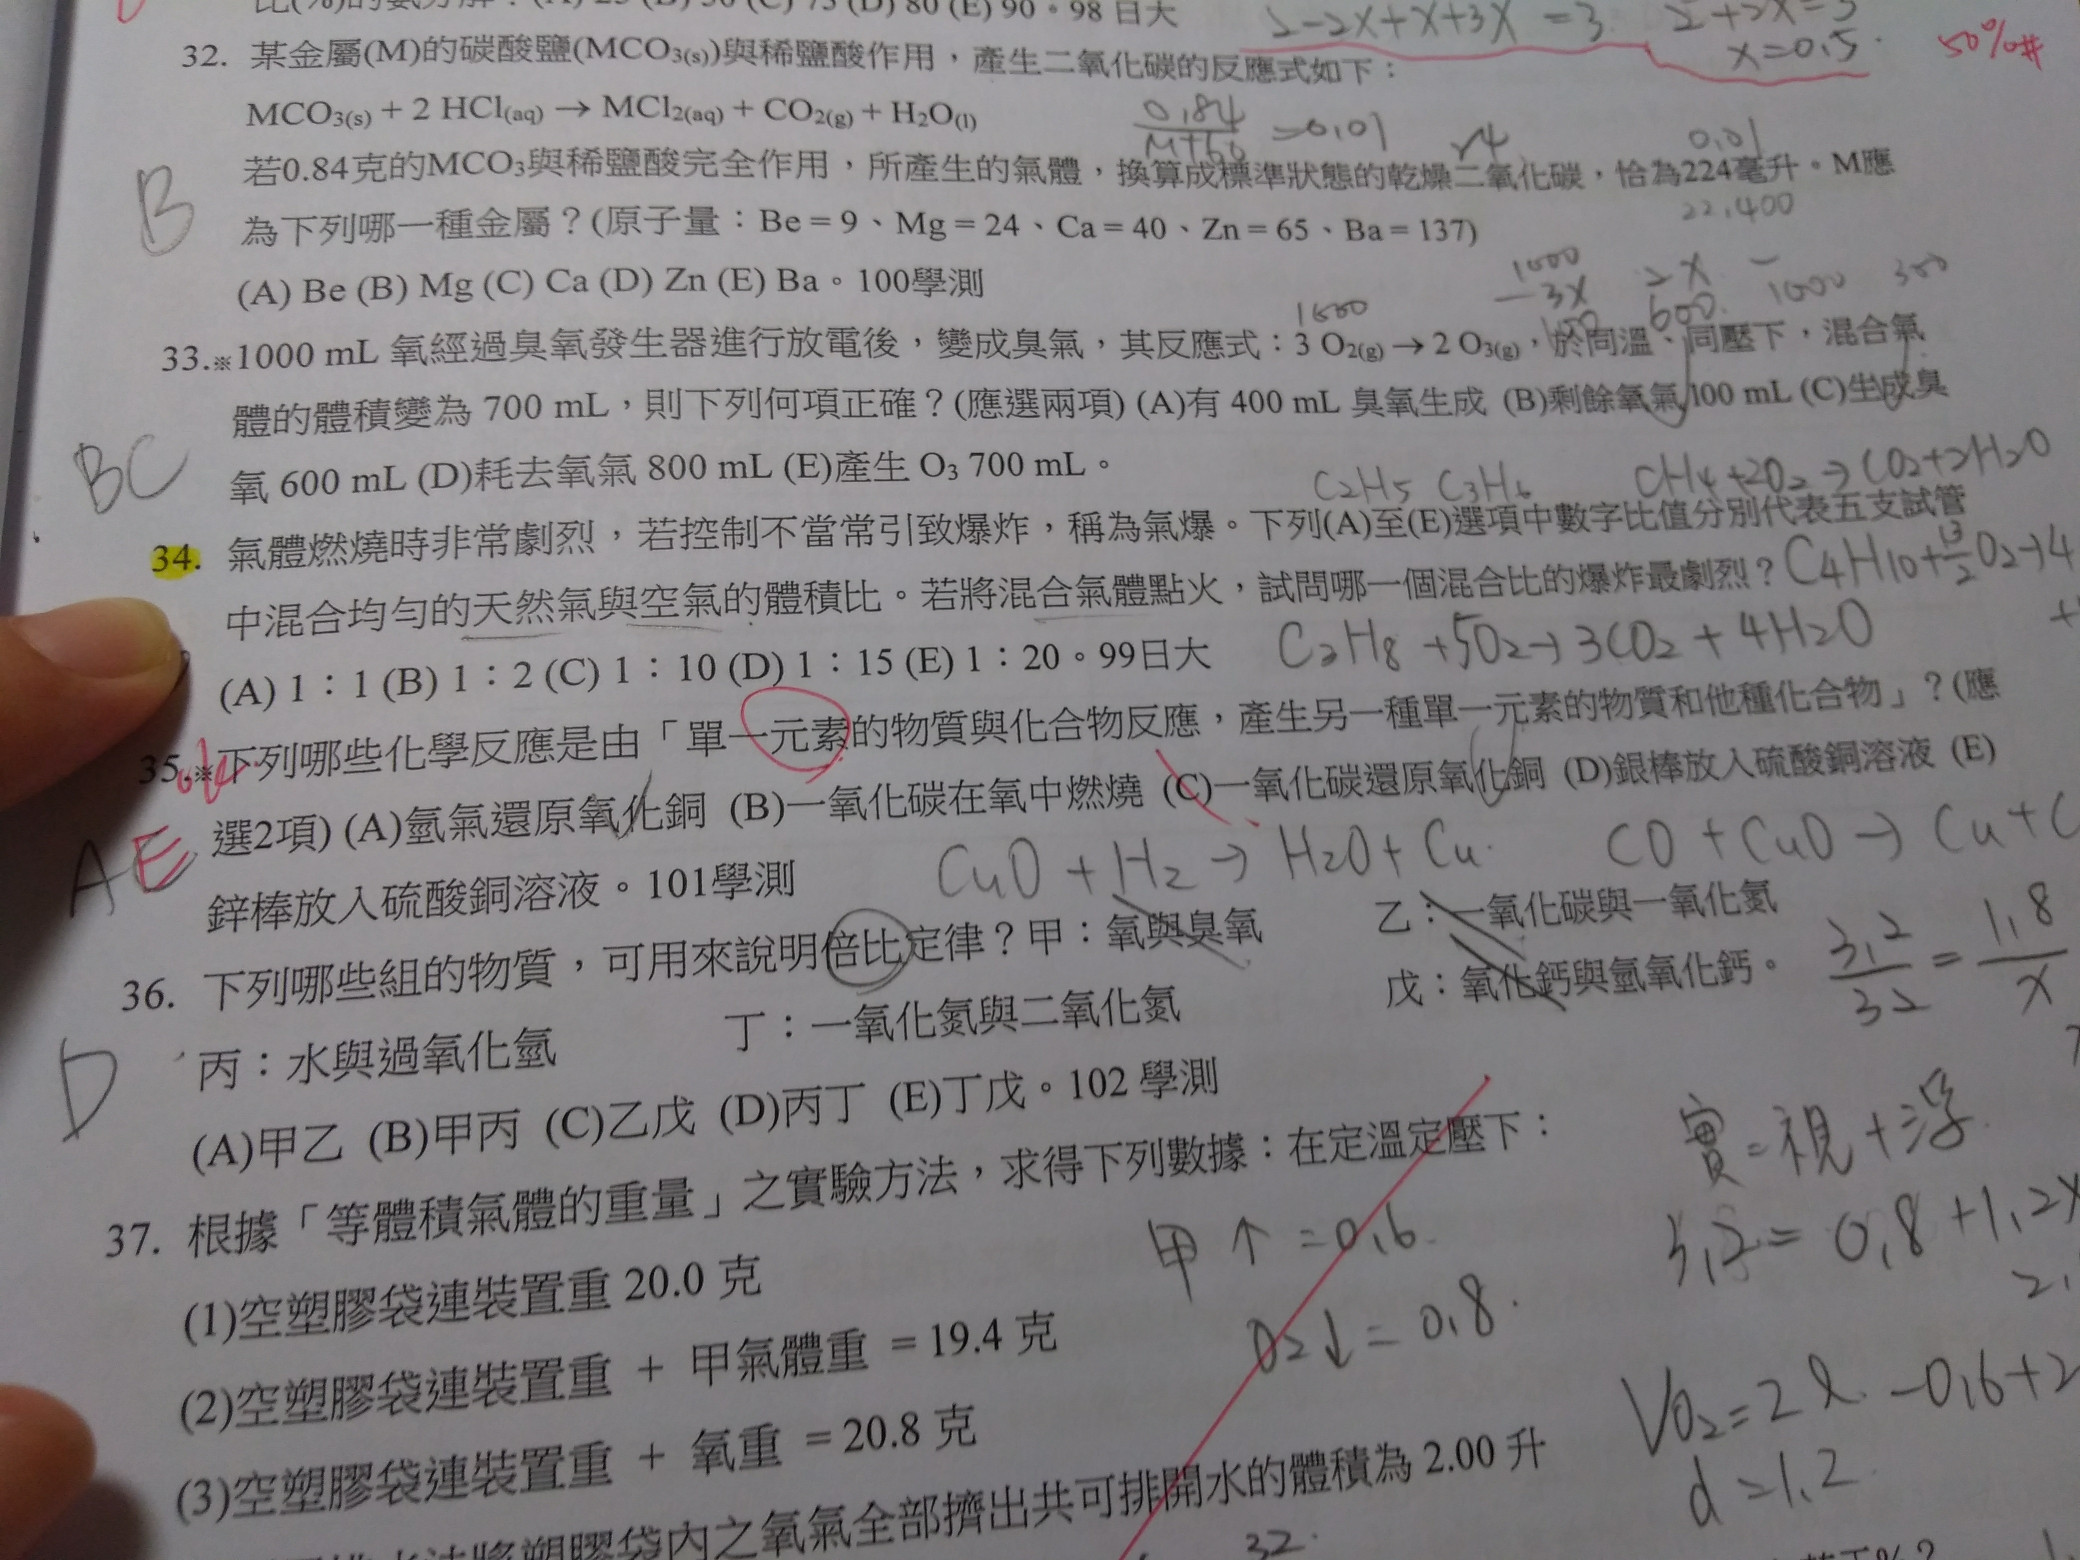 (A) 25 (B) 50 (C) 75 (D) 80 (E) 90。98 日大
2-2X+X+3X =3
X=0.5
50%#
32. 某金屬(M)的碳酸鹽(MCO3(s))與稀鹽酸作用，產生二氧化碳的反應式如下：
MCO3(s) + 2 HCl(aq) → MCl2(aq) + CO2(g) + H2O(l)
0.84
M+60
=0.01
0.01
B
若0.84克的MCO3與稀鹽酸完全作用，所產生的氣體，換算成標準狀態的乾燥二氧化碳，恰為224毫升。M應
22,400
為下列哪一種金屬？(原子量：Be = 9、Mg = 24、Ca = 40、Zn = 65、Ba = 137)
(A) Be (B) Mg (C) Ca (D) Zn (E) Ba。100學測
1000
-3X 2X
600
1000 300
33.※1000 mL 氧經過臭氧發生器進行放電後，變成臭氧，其反應式：3 O2(g) → 2 O3(g)，於同溫、同壓下，混合氣
體的體積變為 700 mL，則下列何項正確？(應選兩項) (A)有 400 mL 臭氧生成 (B)剩餘氧氣 100 mL (C)生成臭
BC
氧 600 mL (D)耗去氧氣 800 mL (E)產生 O3 700 mL。
C2H5 C3H6 CH4+2O2→CO2+2H2O
34. 氣體燃燒時非常劇烈，若控制不當常引致爆炸，稱為氣爆。下列(A)至(E)選項中數字比值分別代表五支試管
中混合均勻的天然氣與空氣的體積比。若將混合氣體點火，試問哪一個混合比的爆炸最劇烈？
C4H10+13/2O2→4
(A) 1：1 (B) 1：2 (C) 1：10 (D) 1：15 (E) 1：20。99日大
C3H8 +5O2→3CO2 + 4H2O
35.※下列哪些化學反應是由「單一元素的物質與化合物反應，產生另一種單一元素的物質和他種化合物」？(應
選2項) (A)氫氣還原氧化銅 (B)一氧化碳在氧中燃燒 (C)一氧化碳還原氧化銅 (D)銀棒放入硫酸銅溶液 (E)
AE
鋅棒放入硫酸銅溶液。101學測
CuO + H2 → H2O + Cu
CO + CuO → Cu + C
36. 下列哪些組的物質，可用來說明倍比定律？甲：氧與臭氧 乙：一氧化碳與一氧化氮
丙：水與過氧化氫 丁：一氧化氮與二氧化氮 戊：氧化鈣與氫氧化鈣。
3.2
32
=
1.8
X
D
(A)甲乙 (B)甲丙 (C)乙戊 (D)丙丁 (E)丁戊。102 學測
37. 根據「等體積氣體的重量」之實驗方法，求得下列數據：在定溫定壓下：
實=視+浮
(1)空塑膠袋連裝置重 20.0 克
甲↑=0.6
3.2= 0.8+1.2X
(2)空塑膠袋連裝置重 + 甲氣體重 = 19.4 克
O2↓=0.8
(3)空塑膠袋連裝置重 + 氧重 = 20.8 克
VO2=2l -0.6+2
d=1.2
塑膠袋內之氧氣全部擠出共可排開水的體積為 2.00 升
32